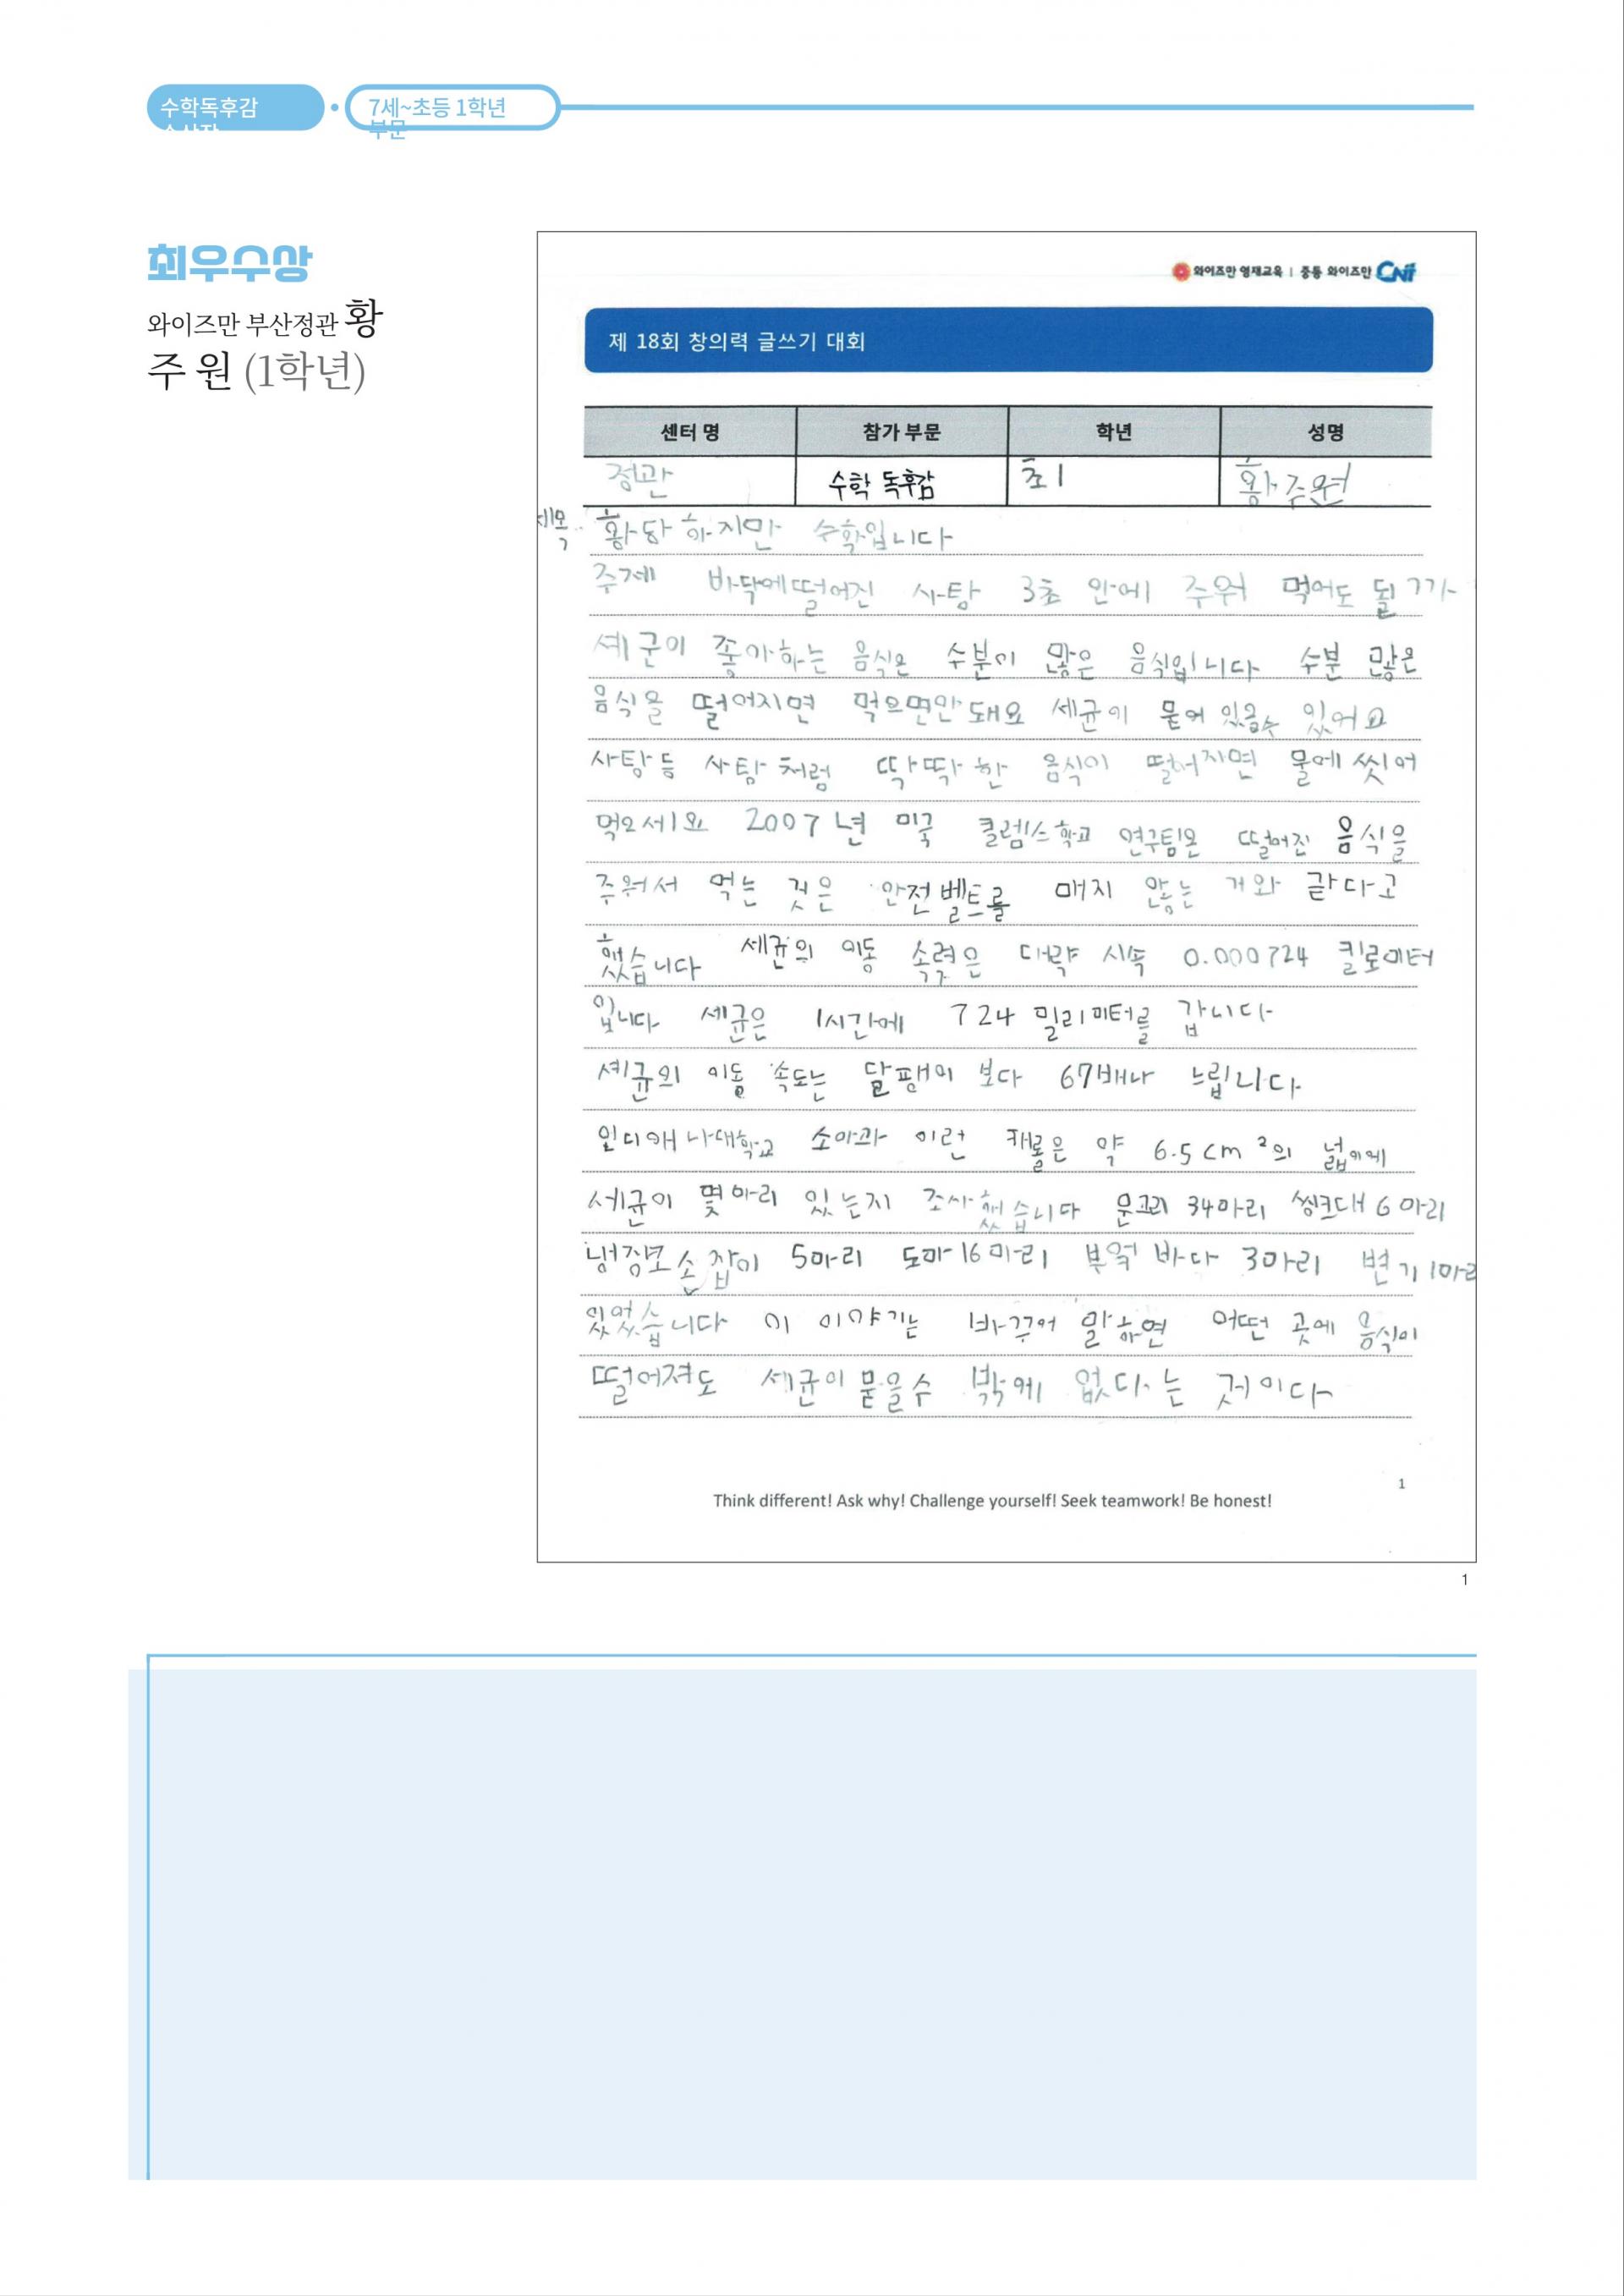 수학독후감
수상작
7세~초등 1학년
부문
최우수상
와이즈만 부산정관 황
주 원 (1학년)
와이즈만 영재교육 | 중등 와이즈만 CNiT
제 18회 창의력 글쓰기 대회
센터 명 참가 부문 학년 성명
정관 수학 독후감 초1 황주원
제목: 황당하지만 수학입니다
주제 바닥에떨어진 사탕 3초 안에 주워 먹어도 될까
세균이 좋아하는 음식은 수분이 많은 음식입니다 수분 많은
음식을 떨어지면 먹으면안돼요 세균이 묻어 있을수 있어요
사탕등 사탕처럼 딱딱한 음식이 떨어지면 물에 씻어
먹으세요 2007년 미국 클렘스학교 연구팀은 떨어진 음식을
주워서 먹는 것은 안전벨트를 매지 않는 거와 같다고
했습니다 세균의 이동 속력은 대략 시속 0.000724 킬로미터
입니다 세균은 1시간에 724 밀리미터를 갑니다
세균의 이동 속도는 달팽이 보다 67배나 느립니다
인디애나대학교 소아과 이런 캐롤은 약 6.5cm²의 넓이에
세균이 몇마리 있는지 조사했습니다 문고리 34마리 씽크대 6마리
냉장고 손잡이 5마리 도마 16마리 부엌 바다 3마리 변기 1마리
있었습니다 이 이야기는 바꾸어 말하면 어떤 곳에 음식이
떨어져도 세균이 묻을수 밖에 없다는 것이다
1
Think different! Ask why! Challenge yourself! Seek teamwork! Be honest!
1